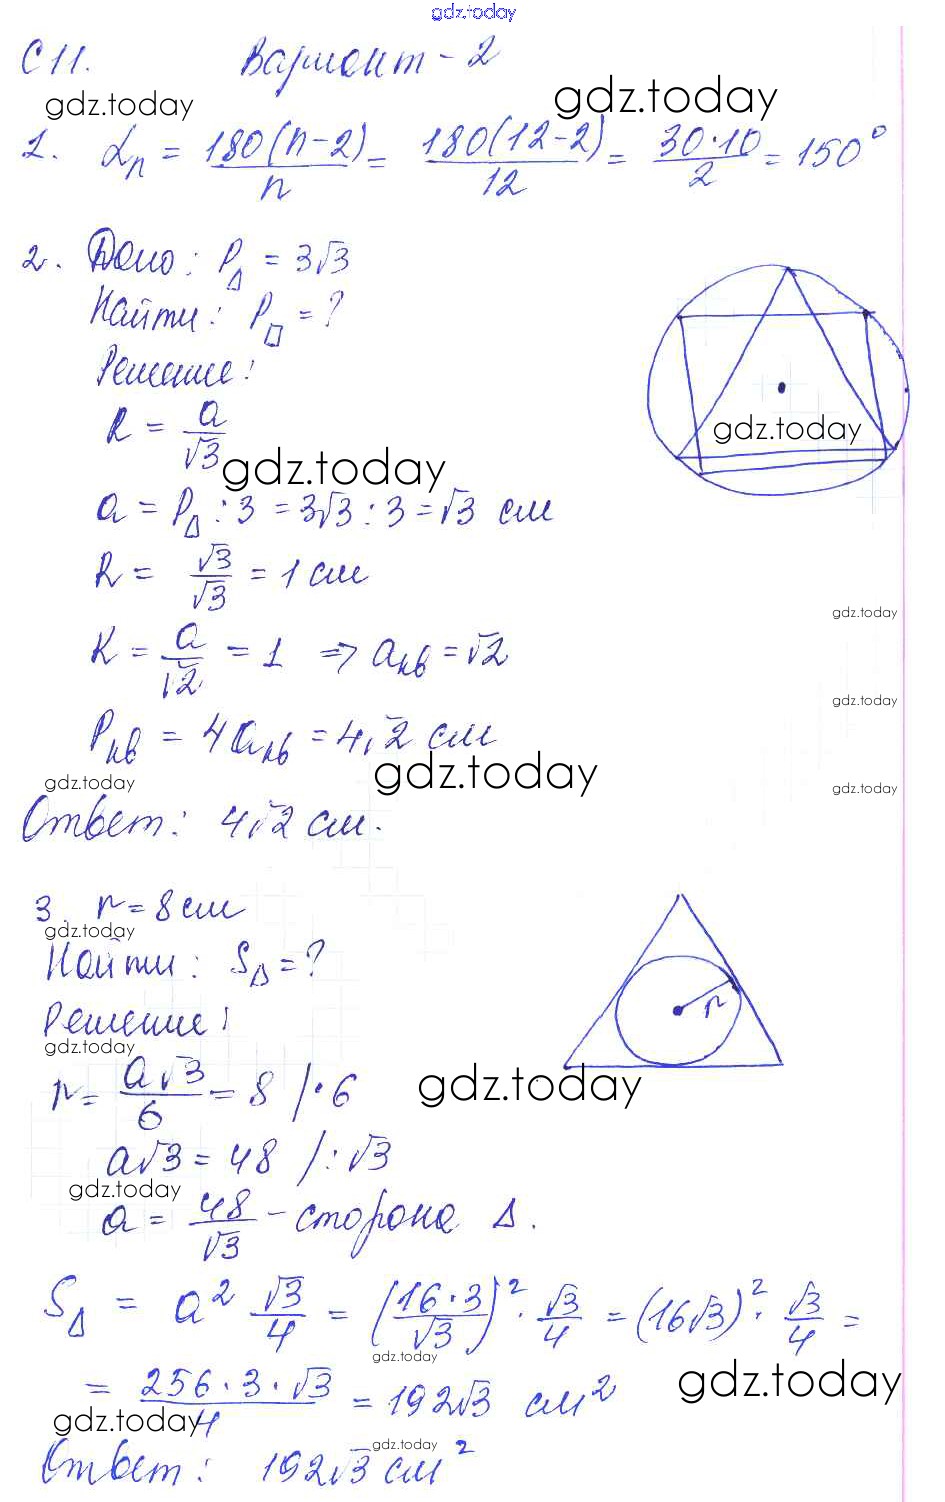 gdz.today
С11. Вариант - 2
gdz.today gdz.today
1. αn = 180(n-2)/n = 180(12-2)/12 = 30·10/2 = 150°
2. Дано: P△ = 3√3
Найти: P□ = ?
Решение:
R = a/√3
gdz.today
gdz.today
a = P△ : 3 = 3√3 : 3 = √3 см
R = √3/√3 = 1 см
gdz.today
R = a/√2 = 1 => aкв = √2
gdz.today
Pкв = 4aкв = 4√2 см
gdz.today gdz.today gdz.today
Ответ: 4√2 см.
3. r = 8 см
gdz.today
Найти: S△ = ?
Решение:
r
gdz.today
r = a√3/6 = 8 /·6
gdz.today
a√3 = 48 /:√3
gdz.today
a = 48/√3 - сторона △.
S△ = a² √3/4 = (16·3/√3)² · √3/4 = (16√3)² · √3/4 =
gdz.today
= 256·3·√3/4 = 192√3 см²
gdz.today
gdz.today
gdz.today
Ответ: 192√3 см²